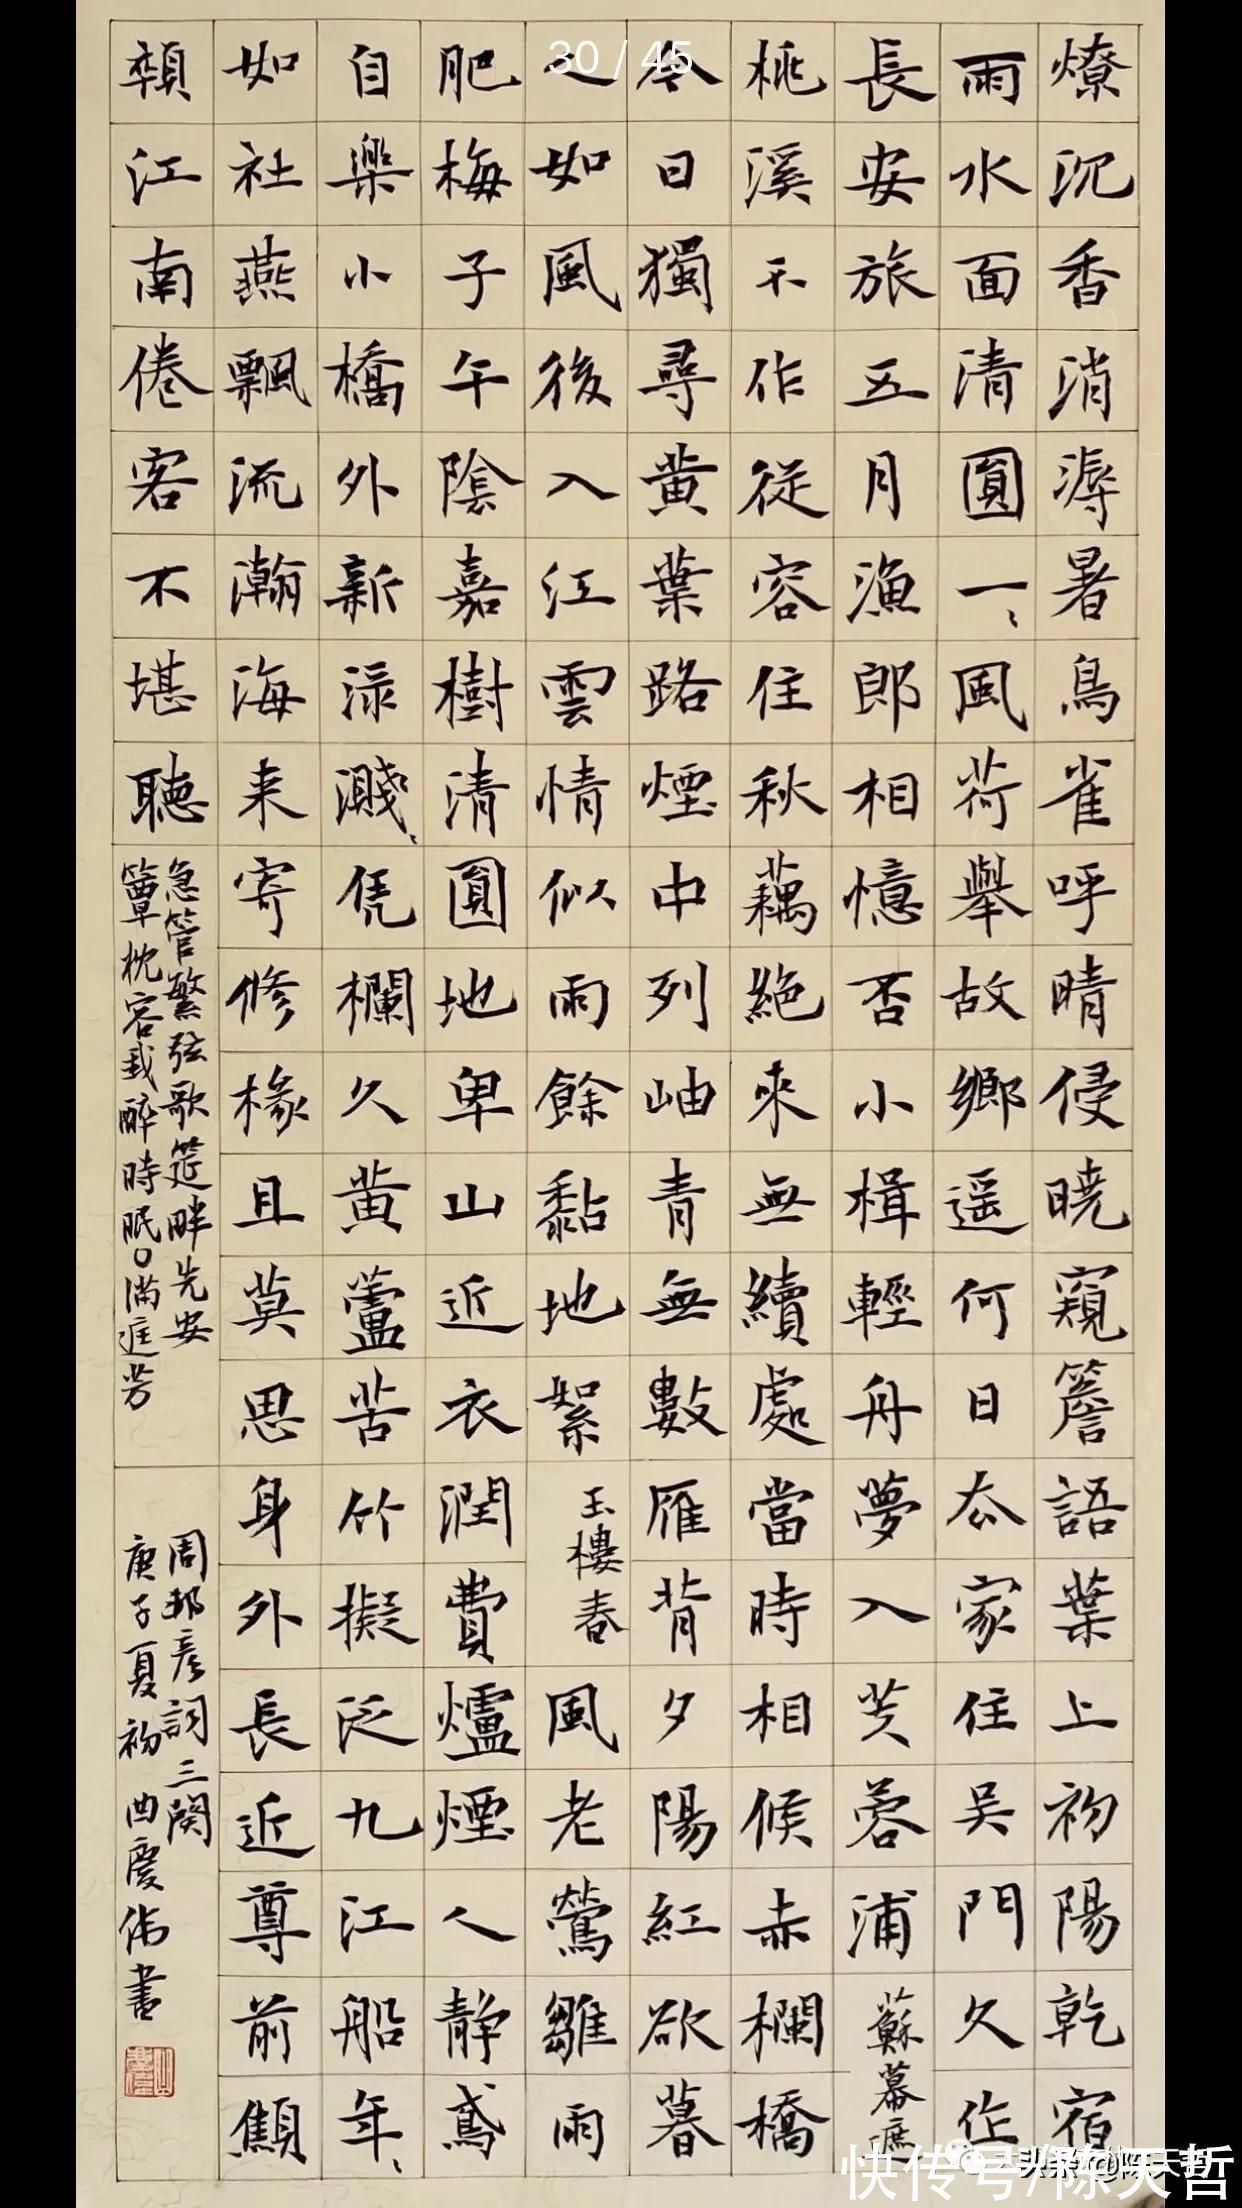 30 / 45
燎沉香消溽暑鳥雀呼晴侵曉窺簷語葉上初陽乾宿
雨水面清圓一〻風荷舉故鄉遥何日厺家住吴門久作
長安旅五月漁郎相憶否小楫輕舟夢入芙蓉浦 蘇幕遮
桃溪不作從容住秋藕絕來無續處當時相候赤欄橋
今日獨尋黄葉路煙中列岫青無數雁背夕陽紅欲暮
人如風後入江雲情似雨餘黏地絮 玉樓春 風老鶯雛雨
肥梅子午陰嘉樹清圓地卑山近衣潤費爐煙人静鳶
自樂小橋外新渌濺〻凭欄久黄蘆苦竹擬泛九江船年〻
如社燕飄流瀚海来寄修椽且莫思身外長近尊前顦
顇江南倦客不堪聽
急管繁弦歌筵畔先安
簟枕容我醉時眠○满庭芳
周邦彦詞三闋
庚子夏初 曲慶偉書
快传号/陈天哲